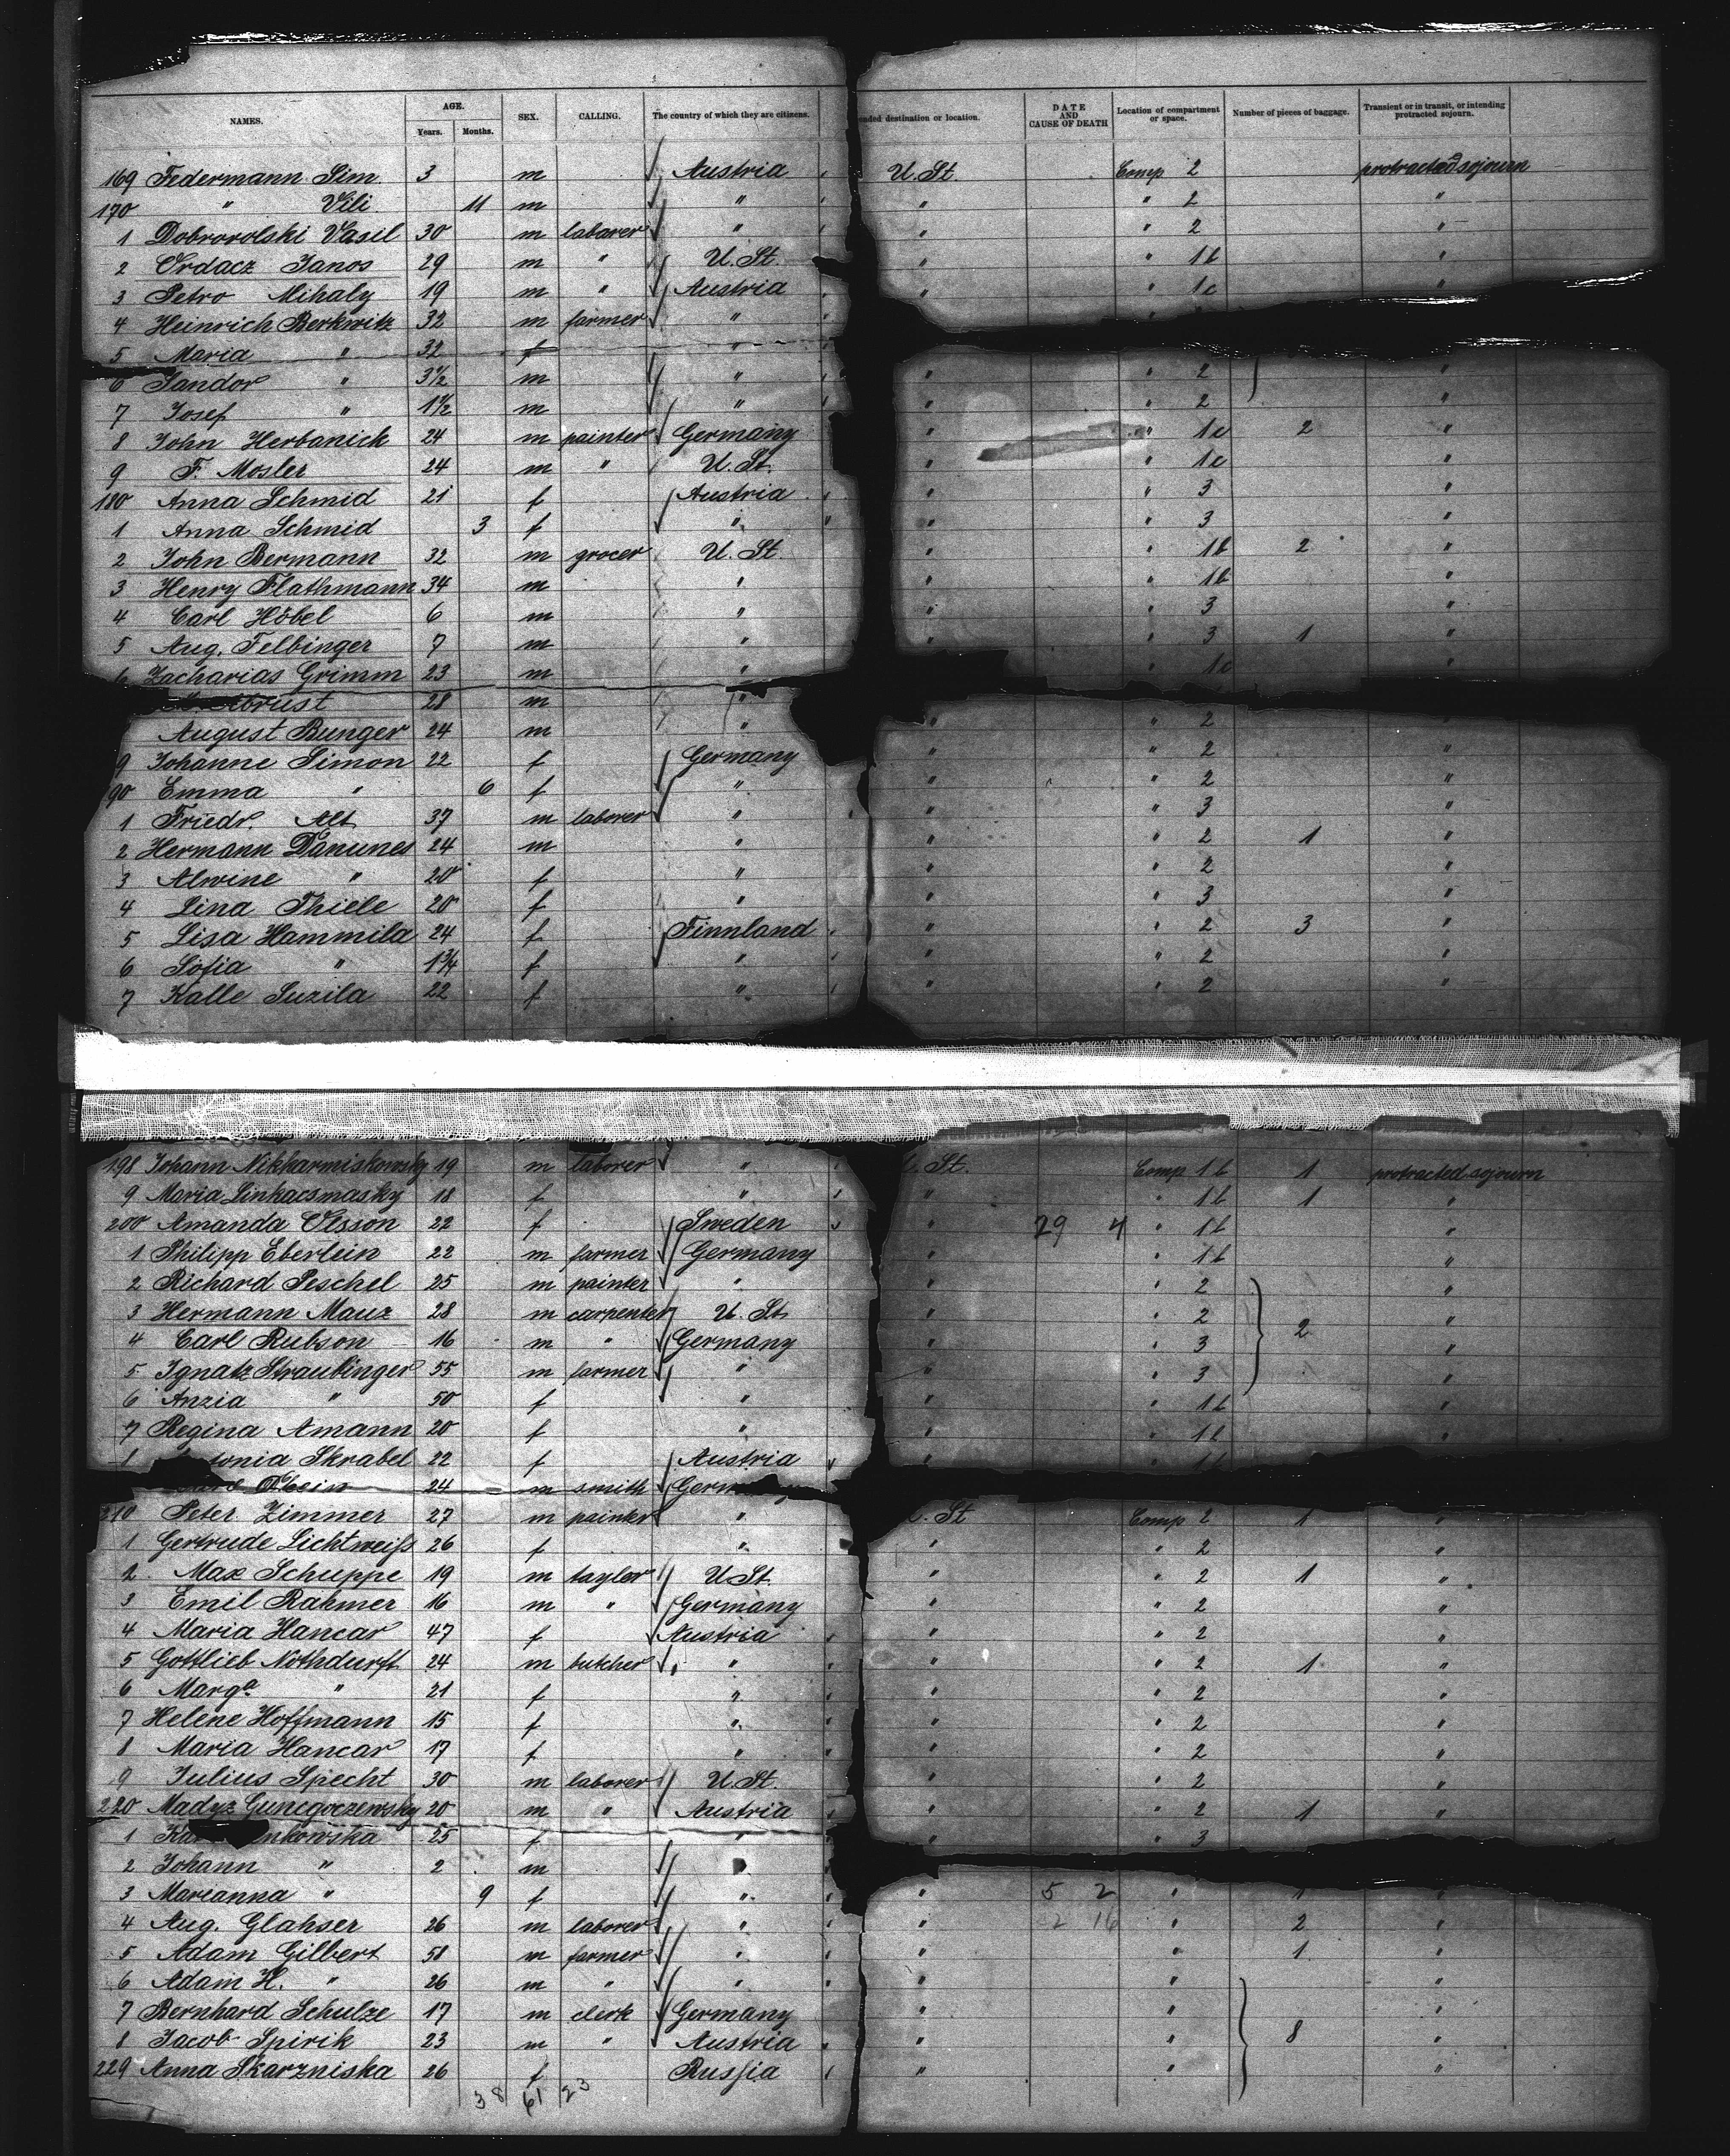 NAMES. AGE. Years. Months. SEX. CALLING. The country of which they are citizens. nded destination or location. DATE AND CAUSE OF DEATH Location of compartment or space. Number of pieces of baggage. Transient or in transit, or intending protracted sojourn.
169 Federmann Sim. 3 m Austria U. St. Comp 2 protracted sojourn
170 " Vili 11 m " " " 2 "
1 Dobrovolski Vasil 30 m laborer " " " 2
2 Ordacz Janos 29 m " U. St. " " 1b "
3 Petro Mihaly 19 m " Austria " " 1c "
4 Heinrich Berkwitz 32 m farmer "
5 Maria " 32 f "
6 Sandor " 3 1/2 m " " " 2 "
7 Josef " 1 1/2 m " " " 2 "
8 John Herbanick 24 m painter Germany " " 1c 2 "
9 F. Mosler 24 m " U. St. " " 1c "
180 Anna Schmid 21 f Austria " " 3 "
1 Anna Schmid 3 f " " " 3 "
2 John Bermann 32 m grocer U. St. " " 1b 2 "
3 Henry Flathmann 34 m " " " 1b "
4 Carl Höbel 6 m " " " 3 "
5 Aug. Felbinger 7 m " " " 3 1 "
6 Zacharias Grimm 23 m " " 1c "
Abrust 28 m " " " 2 "
August Bunger 24 m " " " 2 "
9 Johanne Simon 22 f Germany " " 2 "
90 Emma " 6 f " " " 2 "
1 Friedr. Alt 37 m laborer " " " 3 "
2 Hermann Danunes 24 m " " " 2 1 "
3 Alwine " 20 f " " " 2 "
4 Lina Thiele 20 f " " " 3 "
5 Lisa Hammila 24 f Finnland " " 2 3 "
6 Sofia " 1 3/4 f " " " 2 "
7 Kalle Suzila 22 f " " " 2 "
198 Johann Nikharmiskowsky 19 m laborer " U. St. Comp 1b 1 protracted sojourn
9 Maria Linkacsmasky 18 f " " " 1b 1 "
200 Amanda Olsson 22 f Sweden " 29 4 " 1b "
1 Philipp Eberlein 22 m farmer Germany " 1b "
2 Richard Peschel 25 m painter " " " 2 "
3 Hermann Mauz 28 m carpenter U. St. " " 2 "
4 Carl Rubson 16 m " Germany " " 3 2 "
5 Ignatz Straubinger 55 m farmer " " " 3 "
6 Anzia " 50 f " " " 1b "
7 Regina Amann 20 f " " " 1b "
8 tonia Skrabel 22 f Austria " " 1b
24 m smith Germany
210 Peter Zimmer 27 m painter " U. St Comp 2 1 "
1 Gertrude Lichtweiss 26 f " " " 2 "
2 Max Schuppe 19 m tayler U St. " " 2 1 "
3 Emil Rahmer 16 m " Germany " " 2 "
4 Maria Hancar 47 f Austria " " 2 "
5 Gottlieb Nothdurft 24 m butcher " " " 2 1 "
6 Marga " 21 f " " " 2 "
7 Helene Hoffmann 15 f " " " 2 "
8 Maria Hancar 17 f " " " 2 "
9 Julius Specht 30 m laborer U. St. " " 2 "
220 Madyz Gunegoczewsky 20 m " Austria " " 2 1 "
1 Ka nkowska 25 f " " " 3
2 Johann " 2 m
3 Mareanna " 9 f " " 5 2 " 1 "
4 Aug. Glahser 26 m laborer " " 2 16 " 2 "
5 Adam Gilbert 58 m farmer " " " 1 "
6 Adam H. " 26 m " " " " "
7 Bernhard Schulze 17 m clerk Germany " " "
8 Jacob Spirik 23 m " Austria " " 8 "
229 Anna Skarzniska 26 f Russia " " "
38 61 23